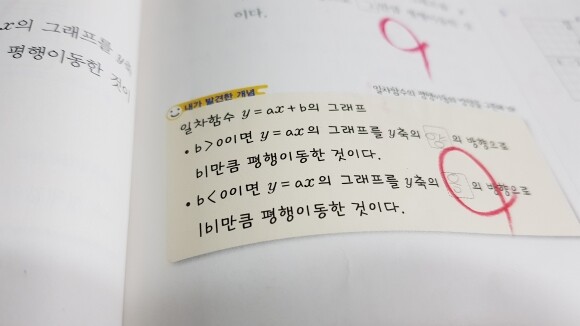 x의 그래프를 y축
평행이동한 것이
이다.
내가 발견한 개념
일차함수 y=ax+b의 그래프
• b>0이면 y=ax의 그래프를 y축의 양 의 방향으로
b만큼 평행이동한 것이다.
• b<0이면 y=ax의 그래프를 y축의 음 의 방향으로
|b|만큼 평행이동한 것이다.